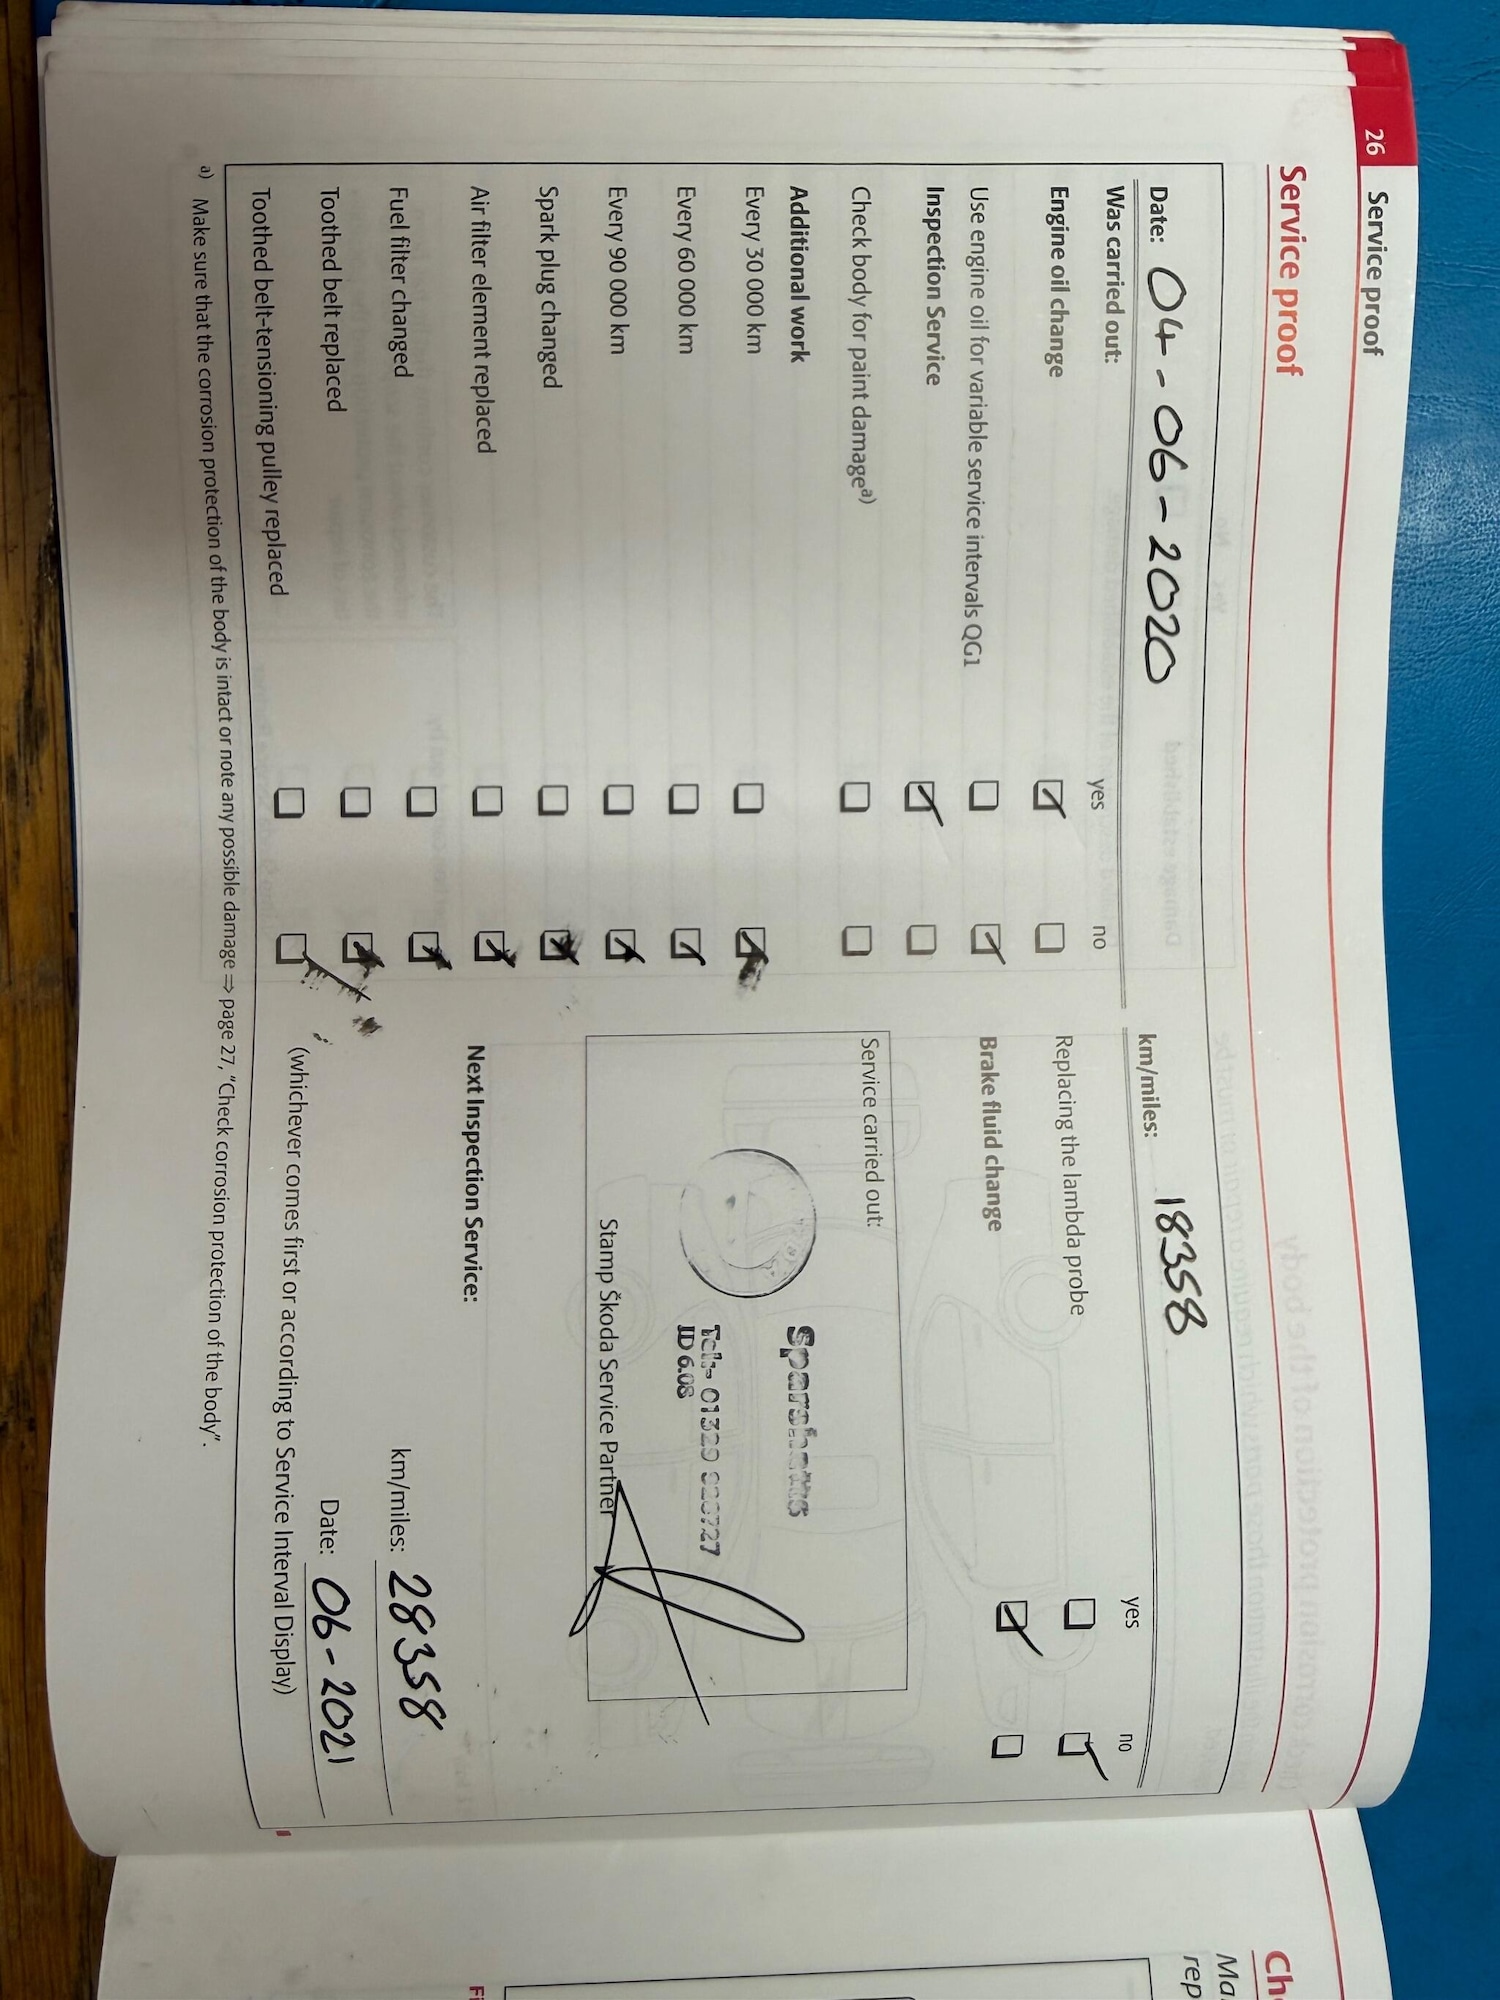 26 Service proof
Service proof
Date: 04-06-2020 km/miles: 18358
Was carried out: yes no yes no
Engine oil change Replacing the lambda probe
Use engine oil for variable service intervals QG1 Brake fluid change
Inspection Service
Check body for paint damage a)
Service carried out:
Additional work
Every 30 000 km
Every 60 000 km
Every 90 000 km
Spark plug changed
Air filter element replaced
Fuel filter changed
Toothed belt replaced
Toothed belt-tensioning pulley replaced
Sparshatts
Tel:- 01329
ID 6.08
Stamp Škoda Service Partner
Next Inspection Service:
km/miles: 28358
Date: 06-2021
(whichever comes first or according to Service Interval Display)
a) Make sure that the corrosion protection of the body is intact or note any possible damage ⇒ page 27, "Check corrosion protection of the body".
Ch
Ma
rep
Fi